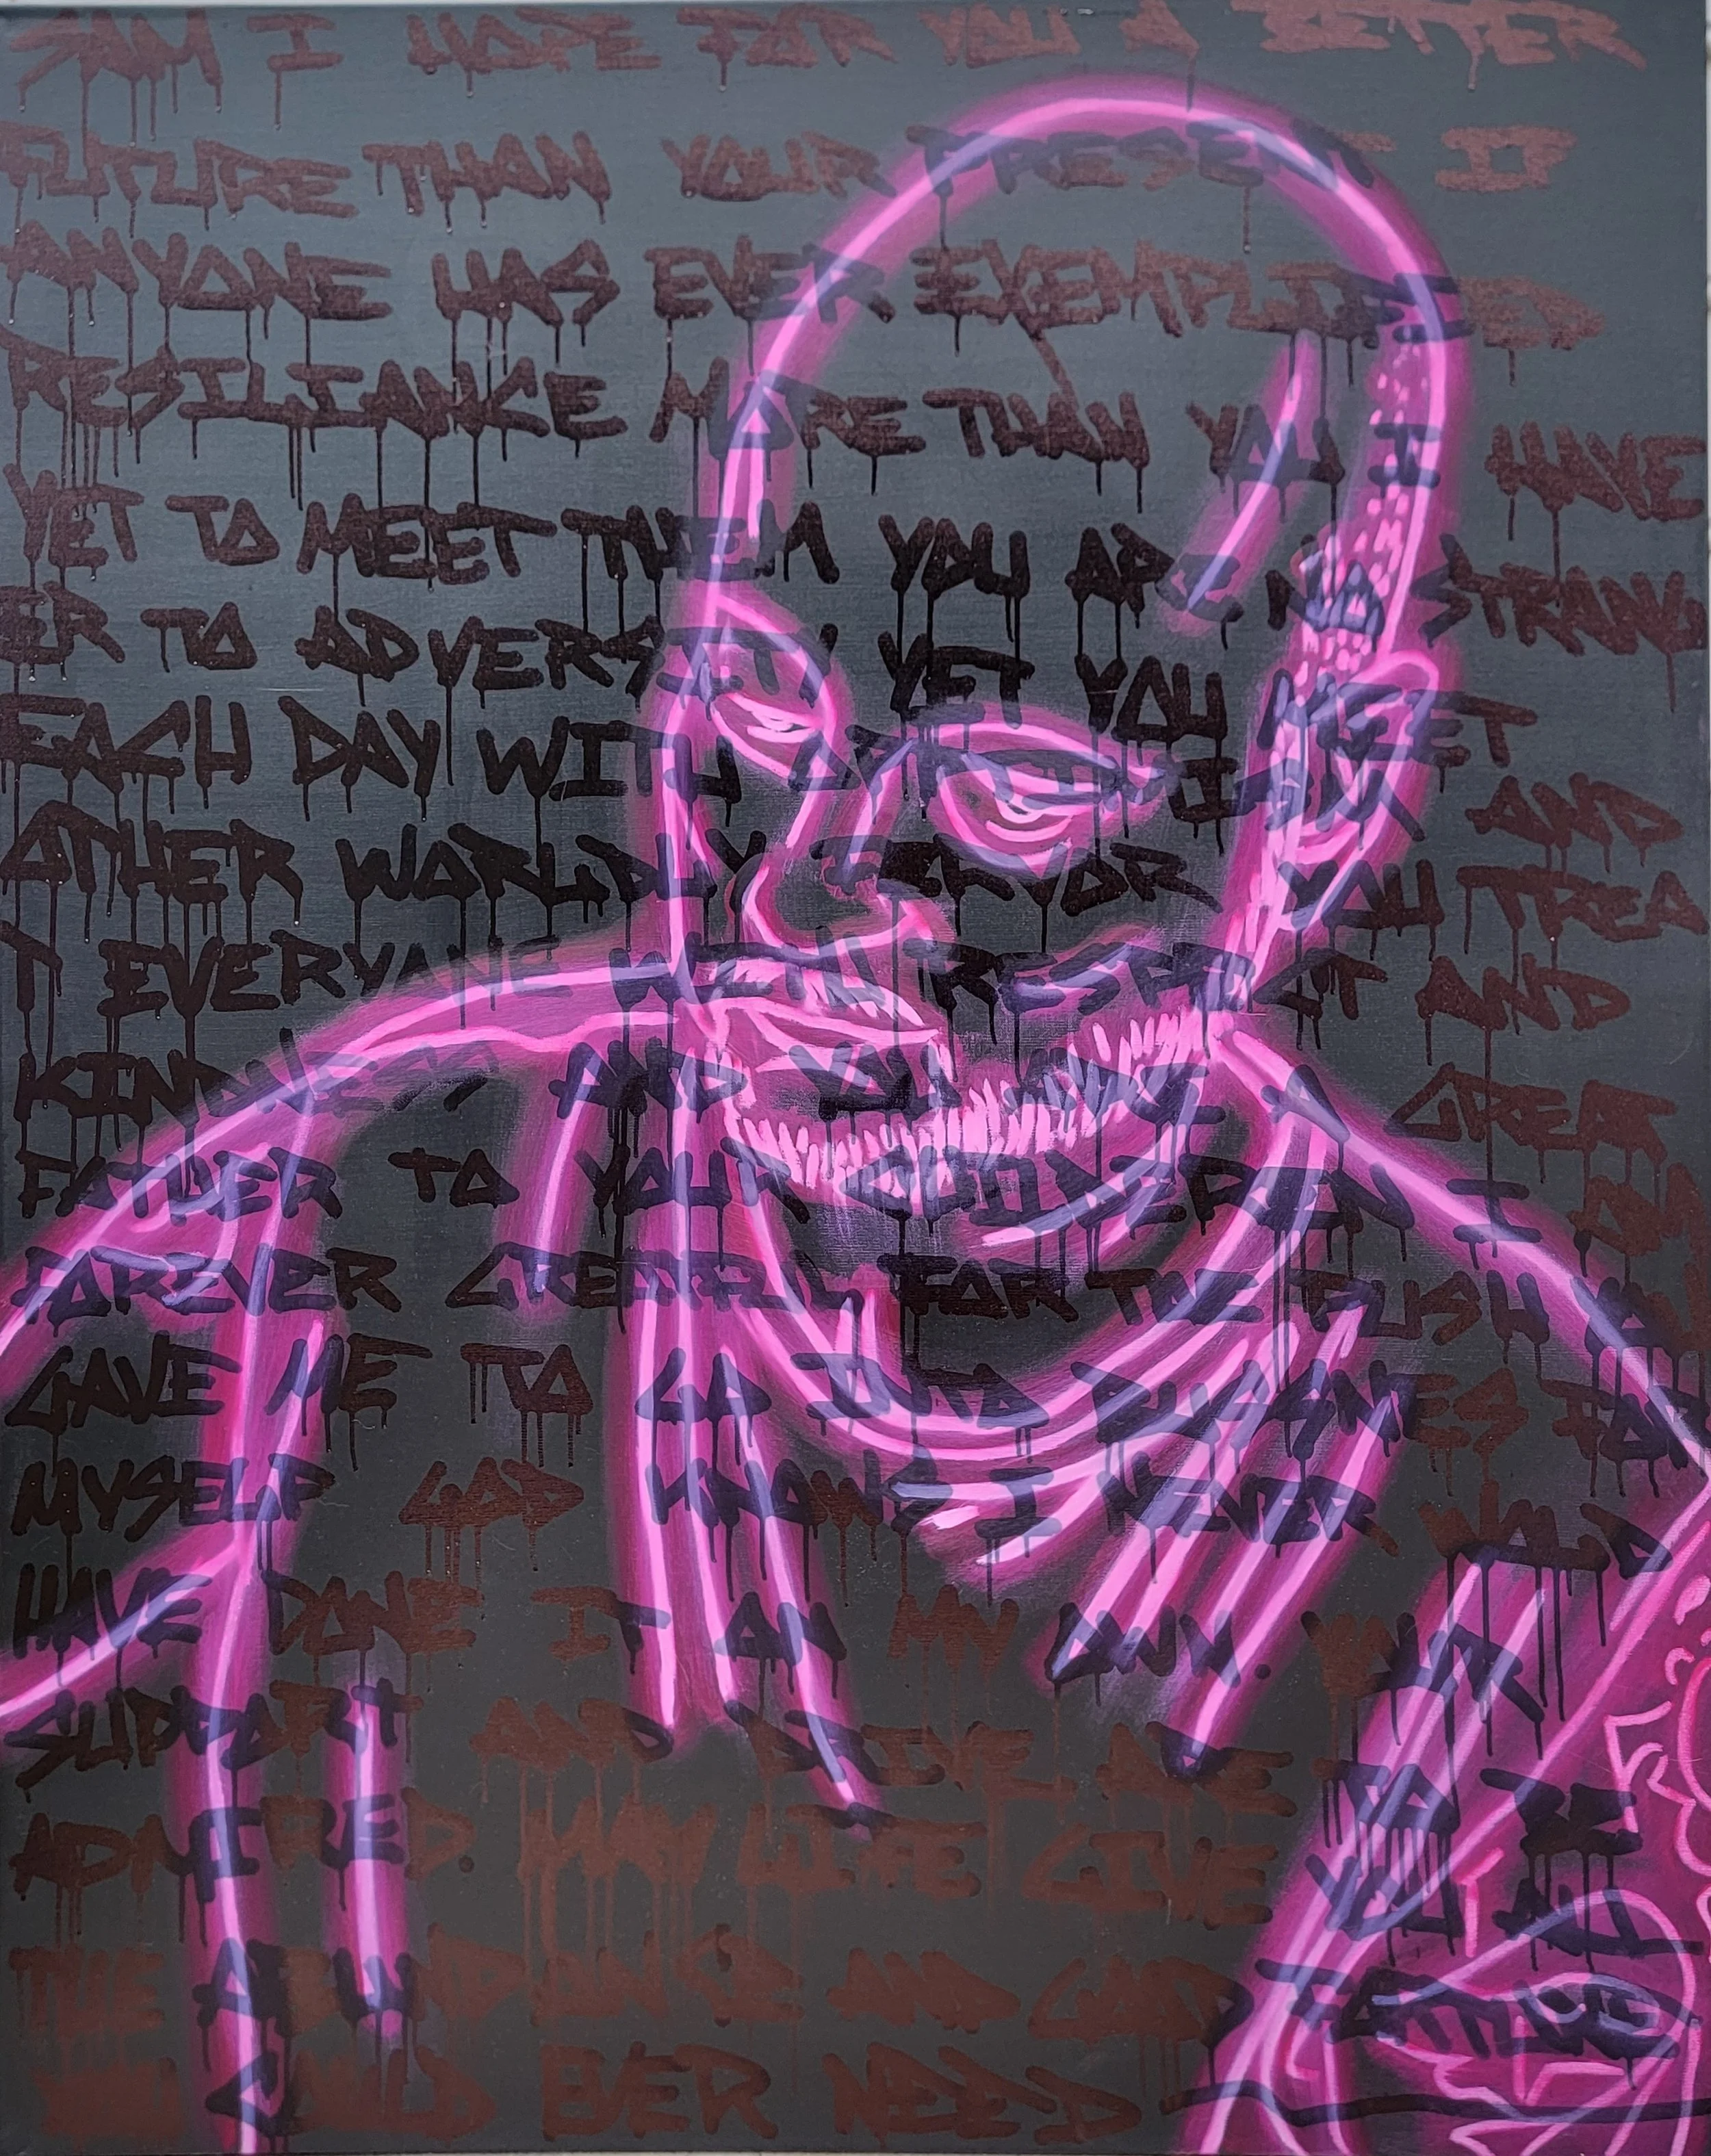 SAM I HOPE FOR YOU A BETTER
FUTURE THAN YOUR PRESENT IF
ANYONE HAS EVER EXEMPLIFIED
RESILIANCE MORE THAN YOU I HAVE
YET TO MEET THEM YOU ARE NO STRANG
ER TO ADVERSITY YET YOU MEET
EACH DAY WITH AND
OTHER WORLDLY FERVOR YOU TREA
T EVERYONE WITH RESPECT AND
KINDNESS AND YOU ARE A GREAT
FATHER TO YOUR CHILDREN I AM
FOREVER GREATFUL FOR THE PUSH YOU
GAVE ME TO GO INTO BUSSINES FOR
MYSELF GOD KNOWS I NEVER WOULD
HAVE DONE IT ON MY OWN. YOUR
SUPPORT AND DRIVE ARE
ADMIRED. MAY LIFE GIVE YOU ALL
THE ABUNDANCE AND GOOD FORTUNE
YOU COULD EVER NEED